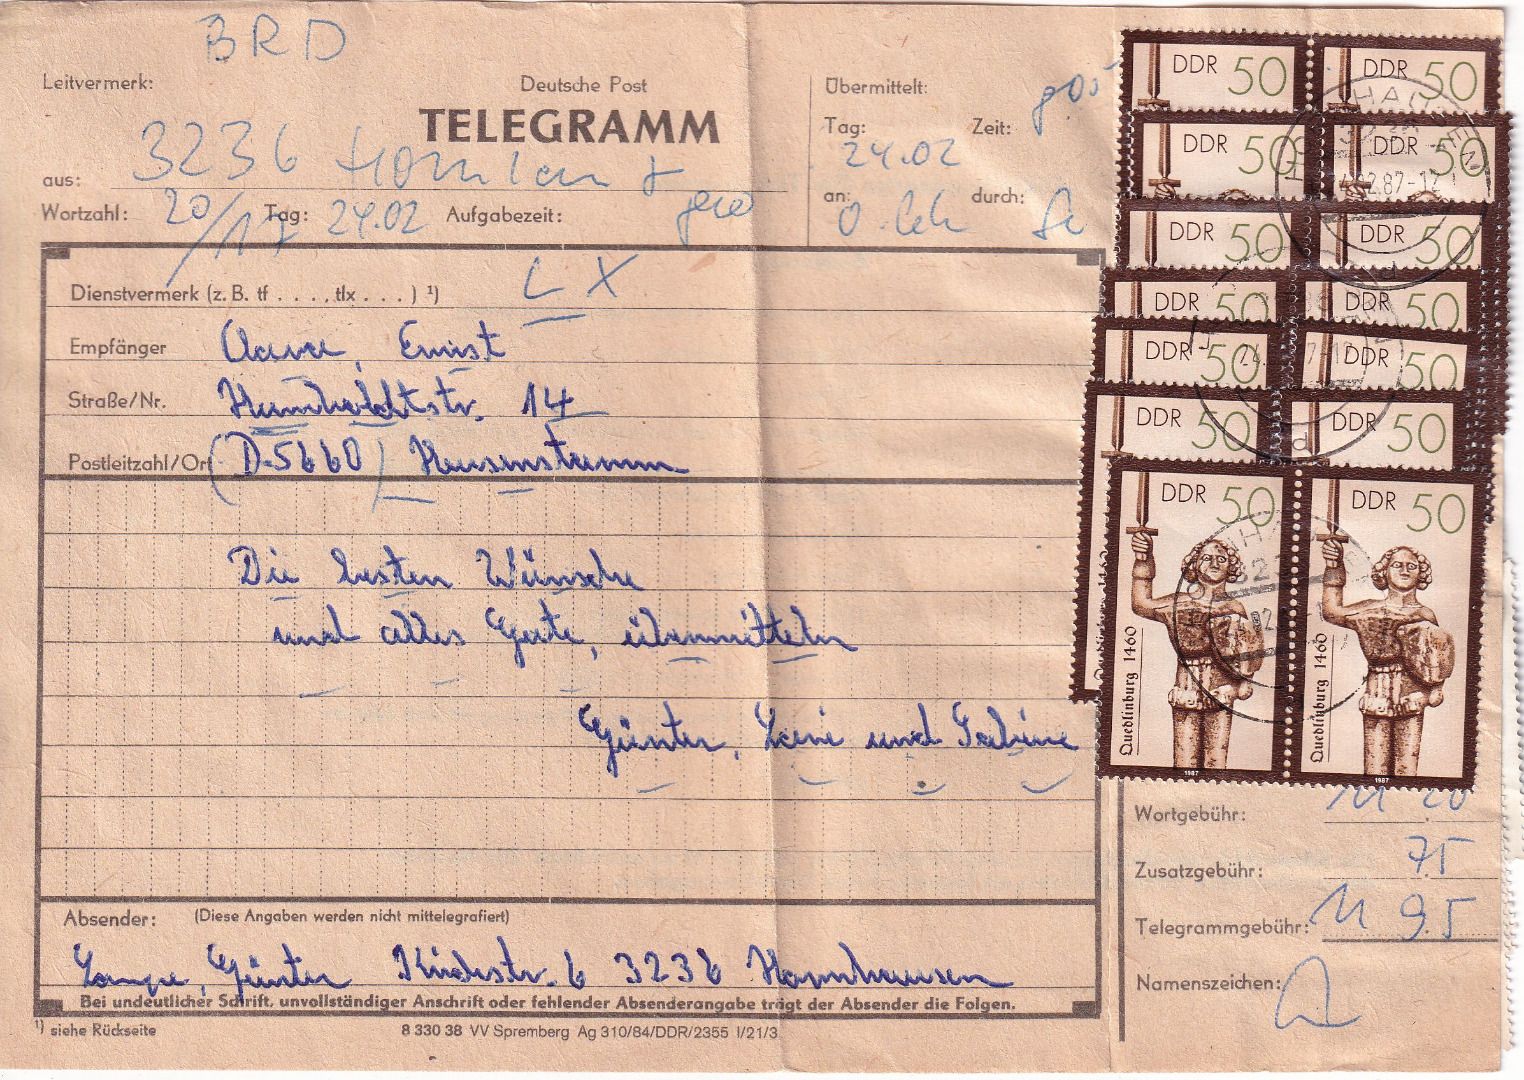 BRD
Leitvermerk:
Deutsche Post
TELEGRAMM
aus: 3236
Wortzahl: 20/17 Tag: 24.02 Aufgabezeit:
Übermittelt:
Tag: Zeit:
24.02
an: durch:
Dienstvermerk (z. B. tf . . . ., tlx . . . ) ¹) LX
Empfänger Ernst
Straße/Nr. Humboldtstr. 14
Postleitzahl/Ort (D-5660)
Die besten Wünsche
und alles Gute, übermitteln
Günter, und Sabine
Absender: (Diese Angaben werden nicht mittelegrafiert)
Lampe, Günter Kirchstr. 6 3236 Hornhausen
Bei undeutlicher Schrift, unvollständiger Anschrift oder fehlender Absenderangabe trägt der Absender die Folgen.
¹) siehe Rückseite
8 330 38 VV Spremberg Ag 310/84/DDR/2355 I/21/3
DDR 50 DDR 50
DDR 50 DDR 50
DDR 50 DDR 50
DDR 50 DDR 50
DDR 50 DDR 50
DDR 50 DDR 50
DDR 50 DDR 50
Quedlinburg 1460
Quedlinburg 1460
1987
1987
Wortgebühr: 11 20
Zusatzgebühr: 75
Telegrammgebühr: 11 95
Namenszeichen: